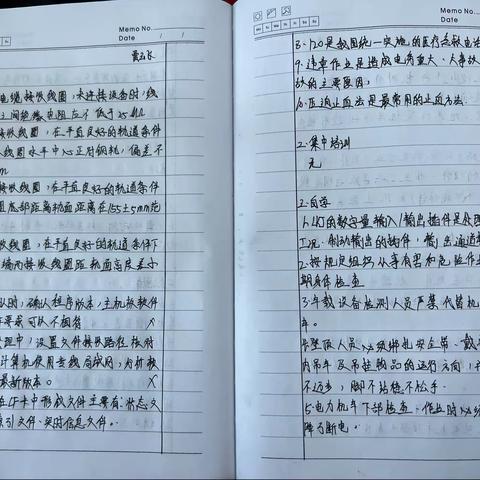 Memo No.
Date / /
电缆接收线圈,未连接设备时,线
之间绝缘电阻应不低于25MΩ
接收线圈,在平直良好的轨道条件
线圈水平中心正对钢轨,偏差不
m
接收线圈,在平直良好的轨道条件
底部距离轨面距离在155±5mm范
收线圈,在平直良好的轨道条件下
端两接收线圈距轨面高度差小
时,确认程序版本,主机板软件
要求可以不相符 X
理中,设置文件换装路径在核对
计算机使用专线局域网,内存核
最新版本。 X
在CF卡中形成文件主要有:状态文
索引文件、实时信息文件。
Memo No.
Date
8.120是我国统一实施的医疗急救电话
9.违章作业是造成电病重大、大事故
故的主要原因,
10.压迫止血法是最常用的止血方法.
2.集中培训
无
3.自学
1.LKJ的数字量输入/输出插件是处理
工况、制动输出的插件,输出通道
2.按规定组织从事有害和危险作业
期身体检查
3.车载设备检测人员严禁代替机
车。
4.坠顶人员必须绑扎安全带、戴
内吊车及吊挂物品的运行方向,
不迈步,脚不站稳不松手.
5.电力机车下部检查、作业时必须
降弓断电.